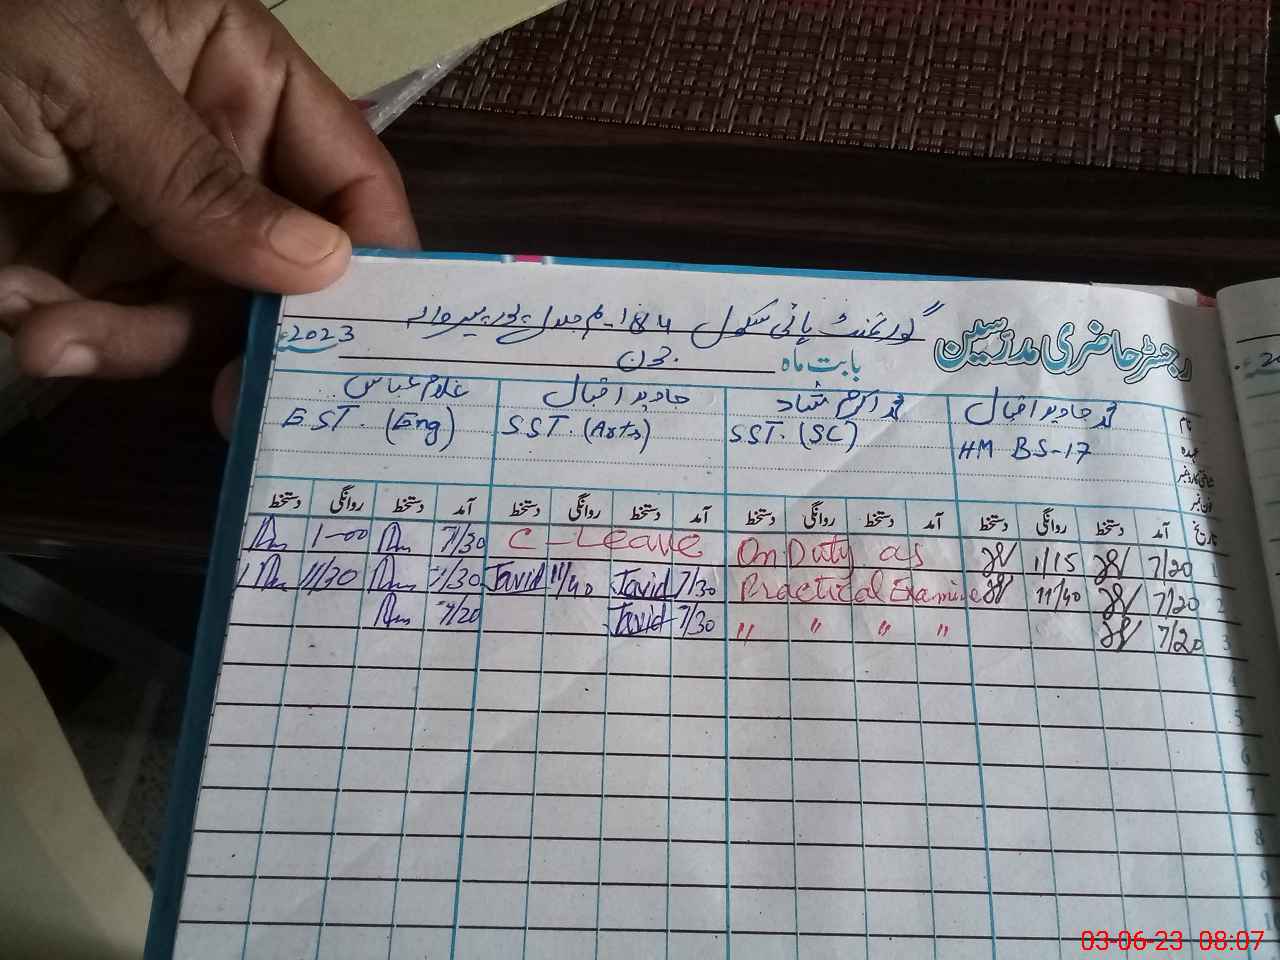 رجسٹر حاضری مدرسین گورنمنٹ ہائی سکول 184
بابت ماہ جون 2023ء
نام محمد جاوید اقبال محمد اکرم شاد جاوید اقبال غلام عباس
عہدہ HM BS-17 SST. (SC) SST. (Arts) E.ST. (Eng)
تاریخ آمد دستخط روانگی دستخط آمد دستخط روانگی دستخط آمد دستخط روانگی دستخط آمد دستخط روانگی دستخط
1 7/20 1/15 On Duty as C-Leave 7/30 1-00
2 7/20 11/40 Practical Examine 7/30 Javid 11/40 Javid 7/30 11/30
3 7/20 " " " " 7/30 Javid
4
5
6
7
8
9
03-06-23 08:07